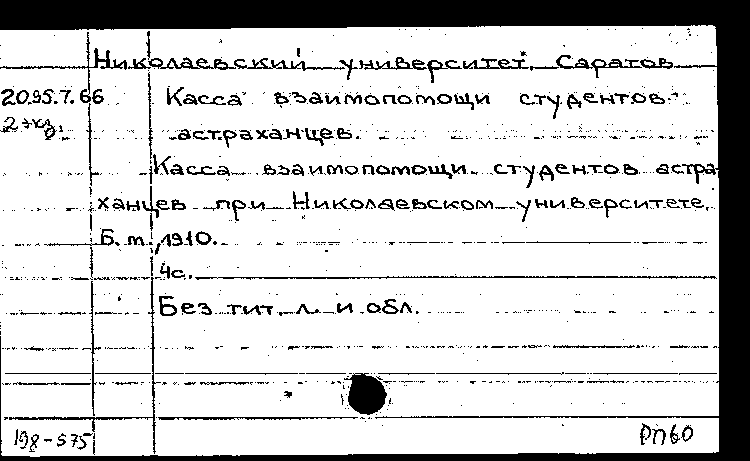 Николаевский университет. Саратов
2095.7.66 Касса взаимопомощи студентов-
2 экз. астраханцев.
Касса взаимопомощи студентов астра
ханцев при Николаевском университете.
Б. т., 1910.
4с.
Без тит. л. и обл.
198-575 РП60